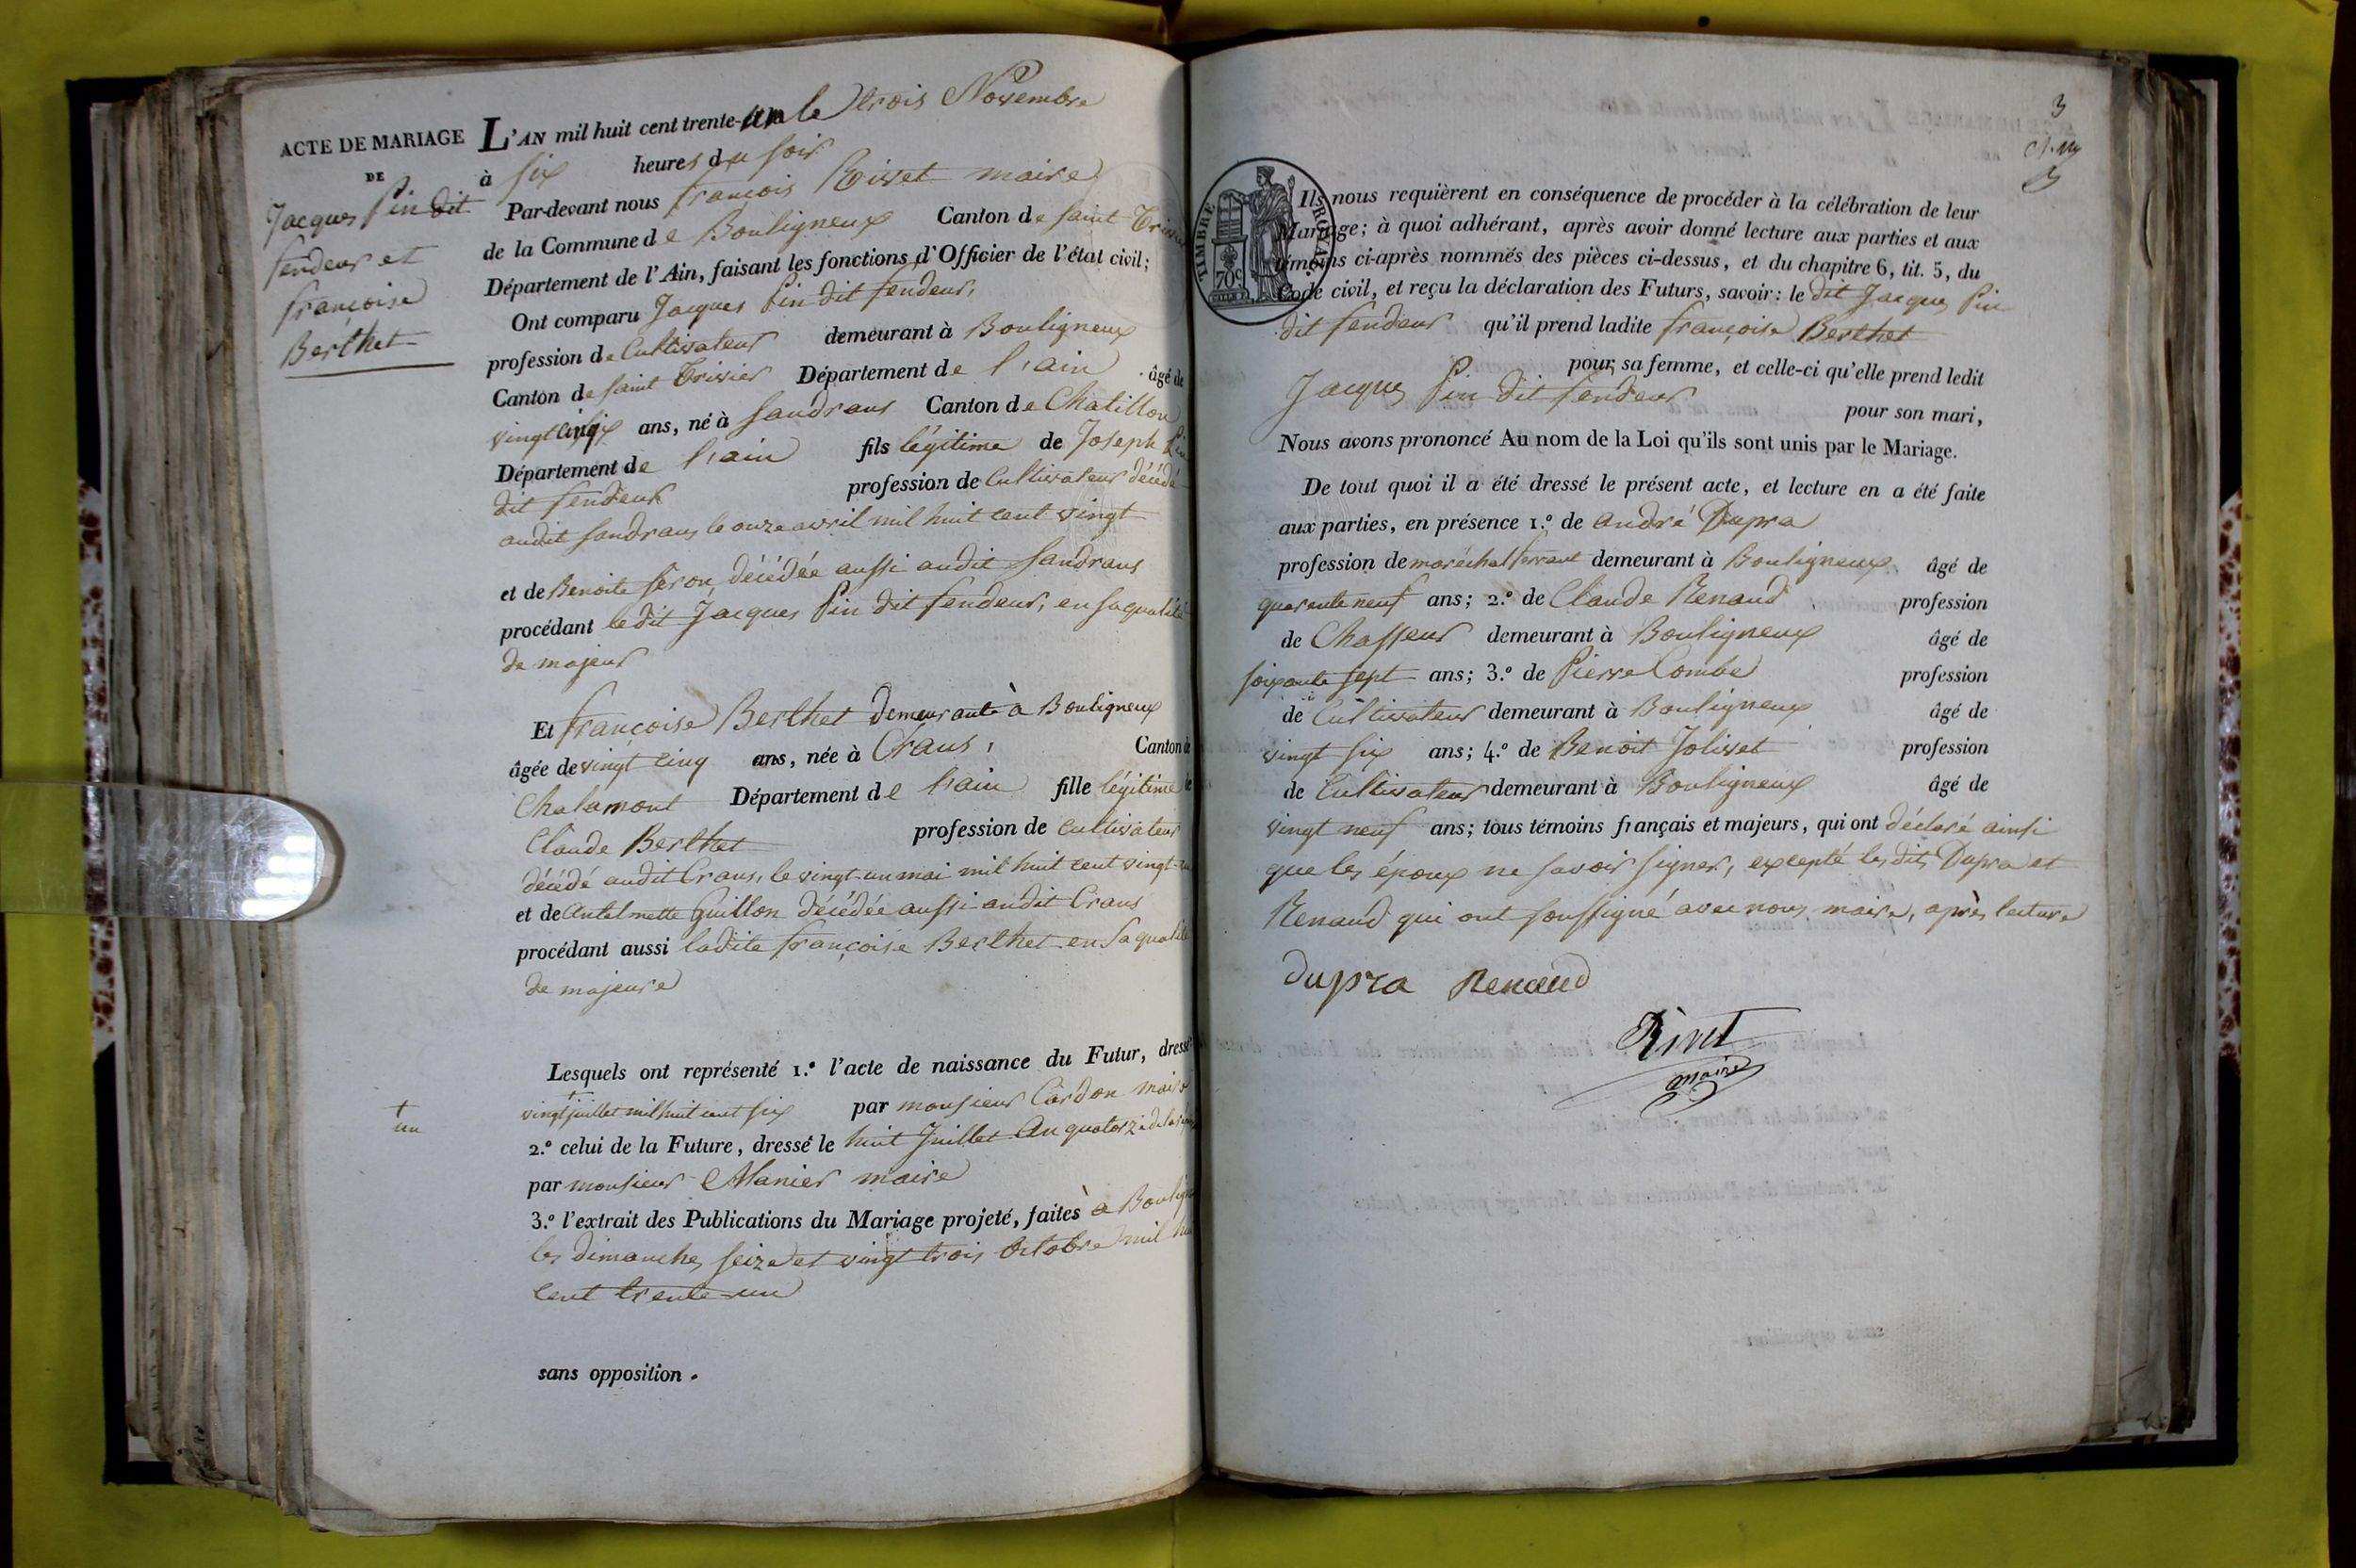 ACTE DE MARIAGE
DE
Jacques Pin dit
fendeur et
françoise
Berthet
L'AN mil huit cent trente-un le trois Novembre
à six heures du soir
Par-devant nous françois Rivet maire
de la Commune de Bouligneux Canton de saint Trivier
Département de l'Ain, faisant les fonctions d'Officier de l'état civil;
Ont comparu Jacques Pin dit fendeur,
profession de Cultivateur demeurant à Bouligneux
Canton de saint Trivier Département de l'ain âgé de
vingt ans, né à Sandrans Canton de Chatillon
Département de l'ain fils légitime de Joseph Pin
dit fendeur profession de Cultivateur décédé
audit Sandrans le onze avril mil huit cent vingt
et de Benoite décédée aussi audit Sandrans
procédant ledit Jacques Pin dit fendeur, en sa qualité
de majeur
Et françoise Berthet demeurante à Bouligneux
âgée de vingt cinq ans, née à Crans, Canton de
Chalamont Département de l'ain fille légitime de
Claude Berthet profession de cultivateur
décédé audit Crans, le vingt-un mai mil huit cent vingt-un
et de Antelmette Guillon décédée aussi audit Crans
procédant aussi ladite françoise Berthet en sa qualité
de majeure
Lesquels ont représenté 1.º l'acte de naissance du Futur, dressé
vingt + juillet mil huit cent six par monsieur Cardon maire
+
un
2.º celui de la Future, dressé le huit Juillet An quatorze de la
par monsieur Manier maire
3.º l'extrait des Publications du Mariage projeté, faites à Bouligneux
les dimanches seize et vingt trois Octobre mil huit
cent trente-un
sans opposition.
3
TIMBRE ROYAL
70c
Ils nous requièrent en conséquence de procéder à la célébration de leur
Mariage; à quoi adhérant, après avoir donné lecture aux parties et aux
témoins ci-après nommés des pièces ci-dessus, et du chapitre 6, tit. 5, du
Code civil, et reçu la déclaration des Futurs, savoir: le dit Jacques Pin
dit fendeur qu'il prend ladite françoise Berthet
pour sa femme, et celle-ci qu'elle prend ledit
Jacques Pin dit fendeur pour son mari,
Nous avons prononcé Au nom de la Loi qu'ils sont unis par le Mariage.
De tout quoi il a été dressé le présent acte, et lecture en a été faite
aux parties, en présence 1.º de André Dupra
profession de maréchal ferrant demeurant à Bouligneux âgé de
quarante neuf ans; 2.º de Claude Renaud profession
de Chasseur demeurant à Bouligneux âgé de
soixante sept ans; 3.º de Pierre Combe profession
de Cultivateur demeurant à Bouligneux âgé de
vingt six ans; 4.º de Benoit Jolivet profession
de Cultivateur demeurant à Bouligneux âgé de
vingt neuf ans; tous témoins français et majeurs, qui ont déclaré ainsi
que les époux ne savoir signer, excepté les dits Dupra et
Renaud qui ont soussigné avec nous maire, après lecture
dupra Renaud
Rivet
maire